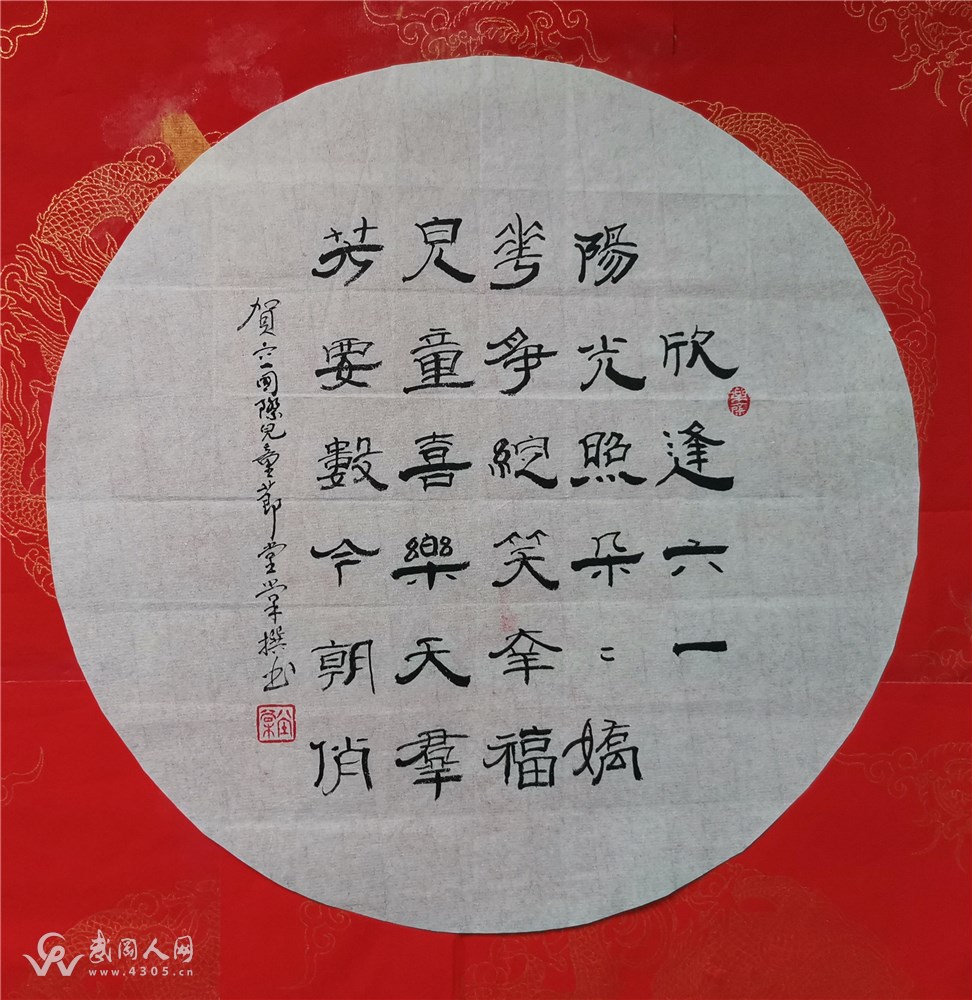 欣逢六一
陽光照朵〻嬌
華爭綻笑幸福
兒童喜樂天羣
芳要數今朝俏
賀六一國際兒童節 堂棠撰书
武冈人网
www.4305.cn